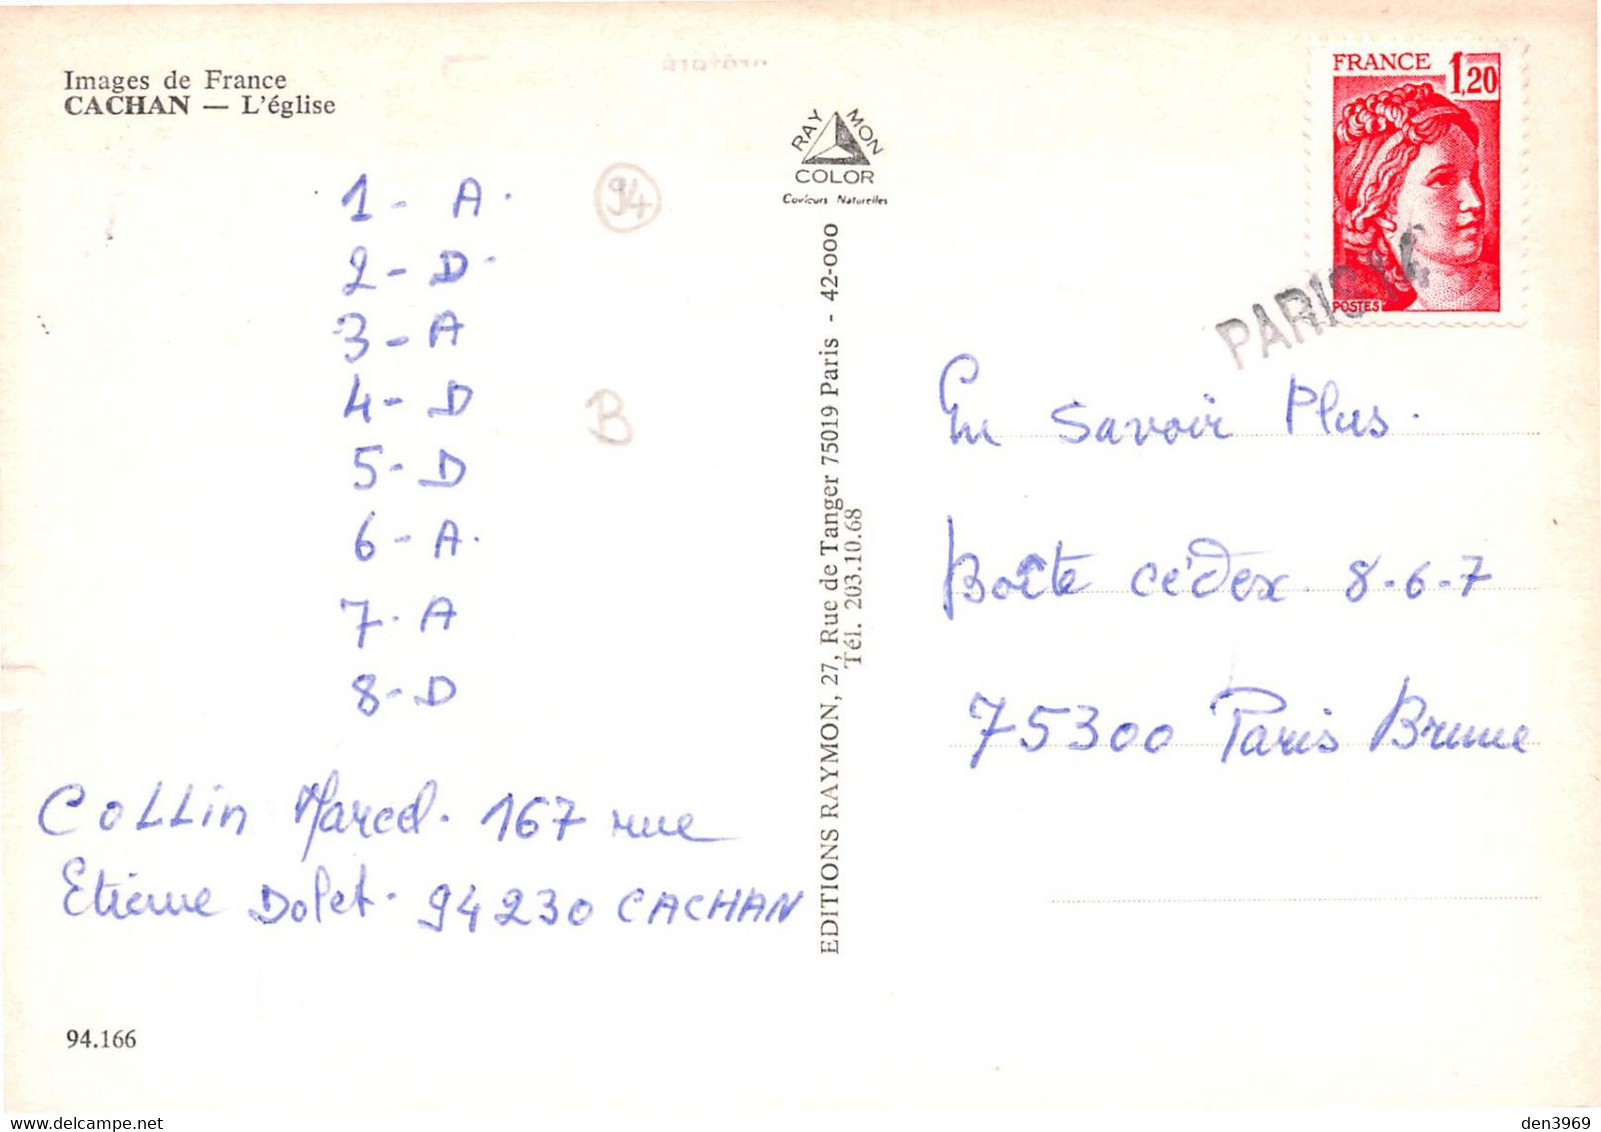 Images de France
CACHAN — L'église
1 - A.
2 - D.
3 - A
4 - D
5 - D
6 - A.
7. A
8 - D
94
B
COLLin Marcel. 167 rue
Etienne Dolet. 94230 CACHAN
94.166
RAYMON
COLOR
Couleurs Naturelles
EDITIONS RAYMON, 27, Rue de Tanger 75019 Paris - 42-000
Tél. 203.10.68
FRANCE 1,20
POSTES
PARIS 14
En Savoir Plus.
Boîte cédex 8-6-7
75300 Paris Brune
den3969